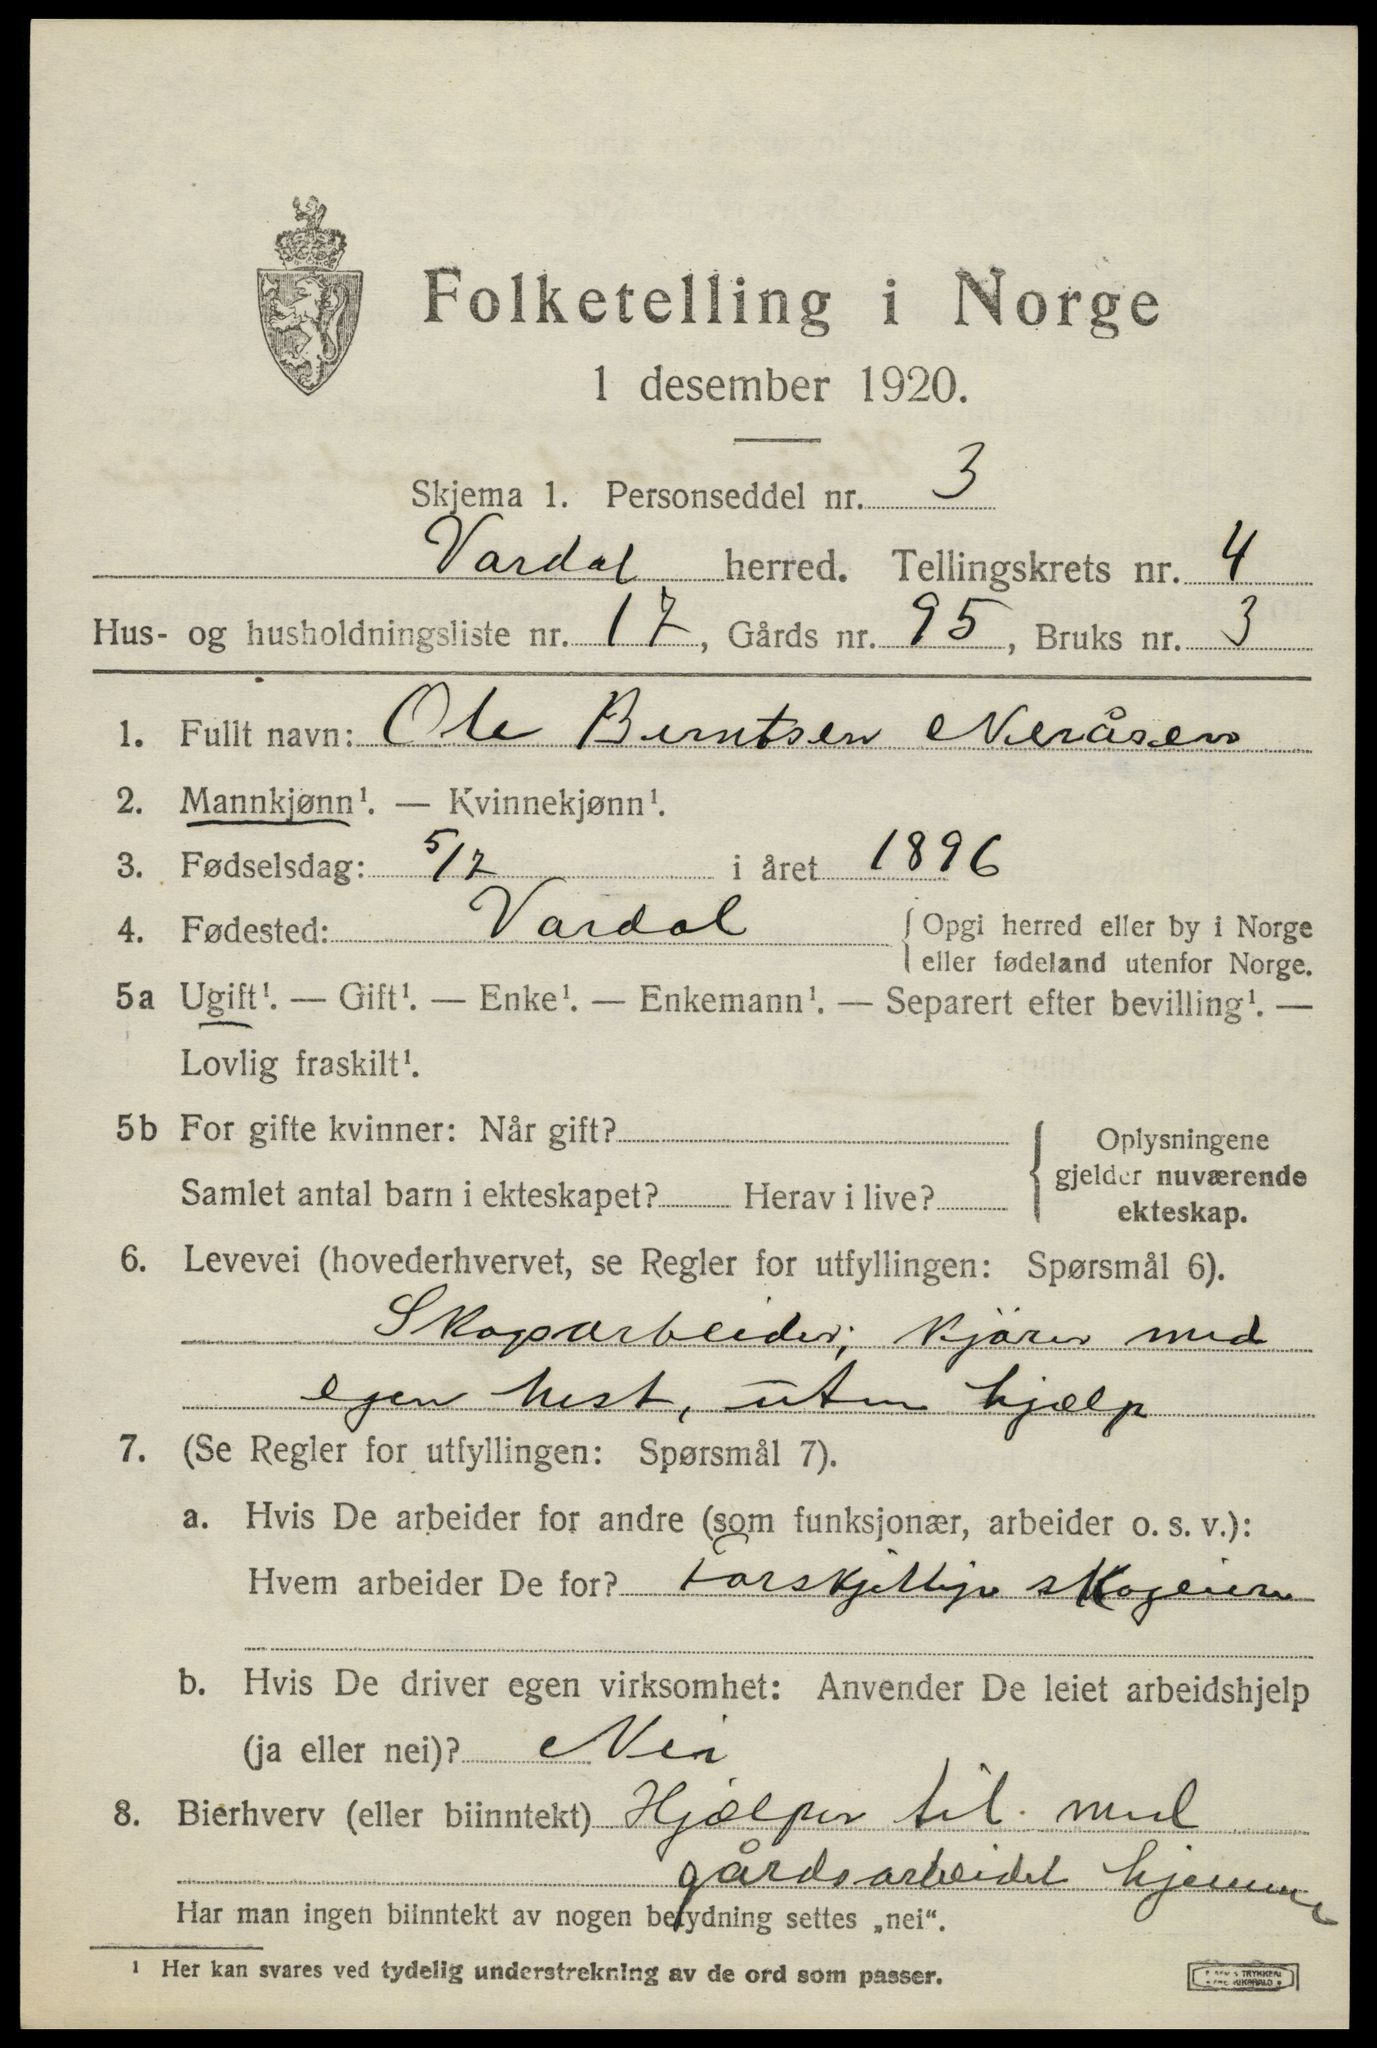 Folketelling i Norge
1 desember 1920.
Skjema 1. Personseddel nr. 3
Vardal herred. Tellingskrets nr. 4
Hus- og husholdningsliste nr. 17, Gårds nr. 95, Bruks nr. 3
1. Fullt navn: Ole Berntsen Neråsen
2. Mannkjønn¹. — Kvinnekjønn¹.
3. Fødselsdag: 5/7 i året 1896
4. Fødested: Vardal { Opgi herred eller by i Norge
eller fødeland utenfor Norge.
5a Ugift¹. — Gift¹. — Enke¹. — Enkemann¹. — Separert efter bevilling¹. —
Lovlig fraskilt¹.
5b For gifte kvinner: Når gift? { Oplysningene
gjelder nuværende
Samlet antal barn i ekteskapet? Herav i live?
ekteskap.
6. Levevei (hovederhvervet, se Regler for utfyllingen: Spørsmål 6).
Skogsarbeider; kjører med
egen hest, uten hjælp
7. (Se Regler for utfyllingen: Spørsmål 7).
a. Hvis De arbeider for andre (som funksjonær, arbeider o. s. v.):
Hvem arbeider De for? Forskjellige skogeiere
b. Hvis De driver egen virksomhet: Anvender De leiet arbeidshjelp
(ja eller nei)? Nei
8. Bierhverv (eller biinntekt) Hjælper til med
gårdsarbeidet hjemme
Har man ingen biinntekt av nogen betydning settes „nei“.
¹ Her kan svares ved tydelig understrekning av de ord som passer.